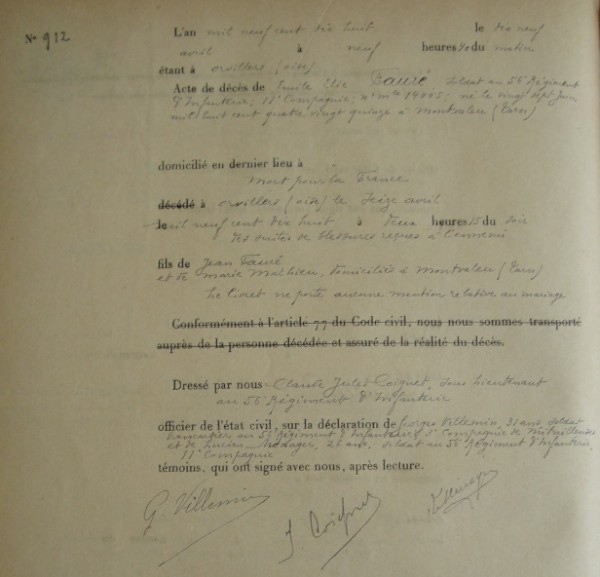 N° 912
L'an mil neuf cent dix huit le dix neuf
avril à neuf heures du matin
étant à orvillers (oise)
Acte de décès de Emile Elie Fauré soldat au 56e Régiment
d'Infanterie, 11e Compagnie, né le vingt sept Juin
mil huit cent quatre vingt quinze à Montvalen (Tarn)
domicilié en dernier lieu à
Mort pour la France
décédé à orvillers (oise) le Seize avril
le mil neuf cent dix huit à deux heures 15 du soir
des suites de blessures reçues à l'ennemi
fils de Jean Fauré
et de Marie Mathieu, domiciliés à Montvalen (Tarn)
Le livret ne porte aucune mention relative au mariage
Conformément à l'article 77 du Code civil, nous nous sommes transporté
auprès de la personne décédée et assuré de la réalité du décès.
Dressé par nous Claude Jules Coignet, sous Lieutenant
au 56e Régiment d'Infanterie
officier de l'état civil, sur la déclaration de Georges Villemin, 31 ans, soldat
brancardier au 56e Régiment d'Infanterie, Compagnie de Mitrailleuses
et de Lucien 26 ans, soldat au 56e Régiment d'Infanterie,
11e Compagnie
témoins, qui ont signé avec nous, après lecture.
G. Villemin
J Coignet